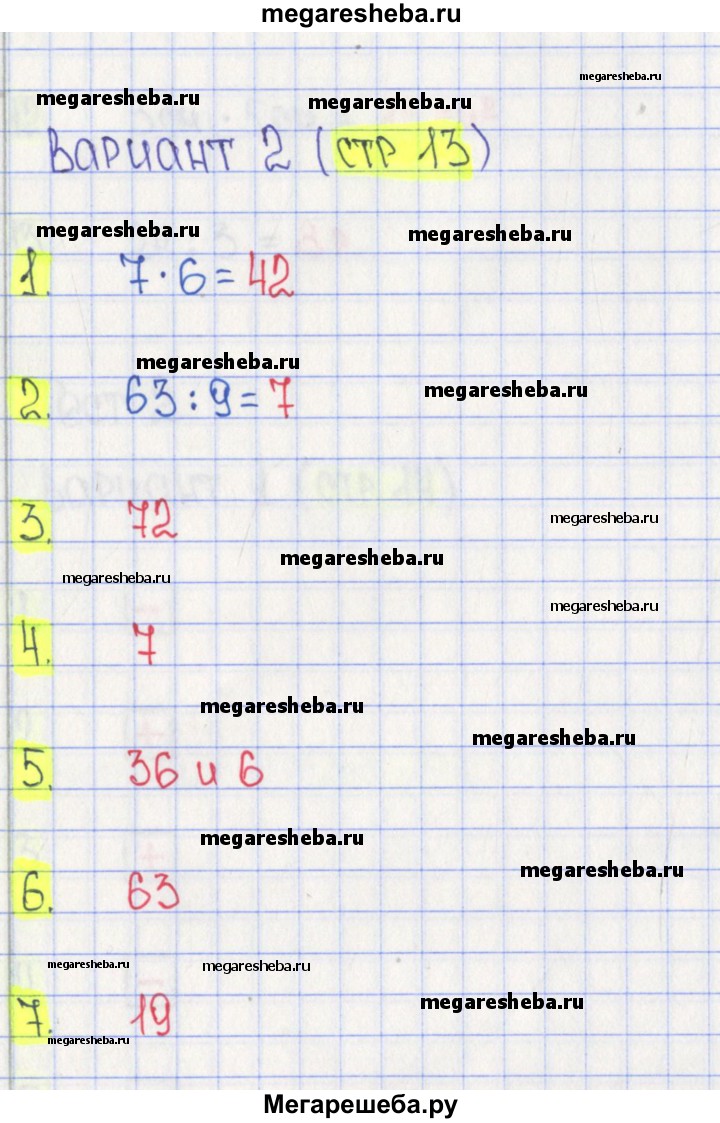 megaresheba.ru
megaresheba.ru
megaresheba.ru
megaresheba.ru
Вариант 2 (стр 13)
megaresheba.ru
megaresheba.ru
1. 7 · 6 = 42
megaresheba.ru
megaresheba.ru
2. 63 : 9 = 7
3. 72
megaresheba.ru
megaresheba.ru
megaresheba.ru
megaresheba.ru
4. 7
megaresheba.ru
megaresheba.ru
5. 36 и 6
megaresheba.ru
megaresheba.ru
6. 63
megaresheba.ru
megaresheba.ru
megaresheba.ru
7. 19
megaresheba.ru
Мегарешеба.ру